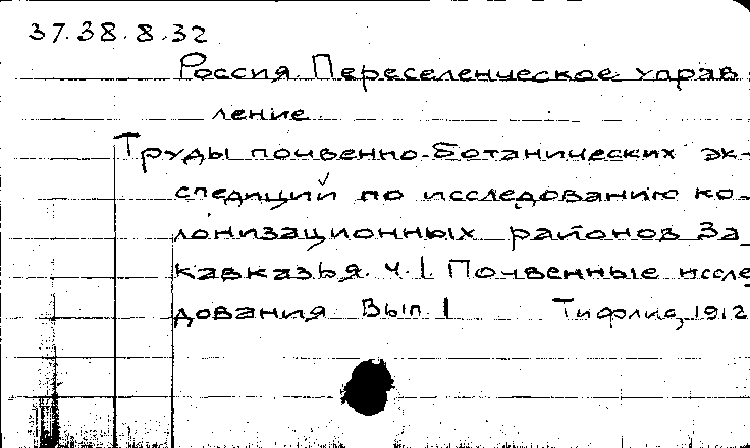 37.38.8.32
Россия. Переселенческое управ
ление
Труды почвенно-ботанических эк-
спедиций по исследованию ко-
лонизационных районов За
кавказья. Ч. 1 Почвенные иссле
дования Вып. 1 Тифлис, 1912